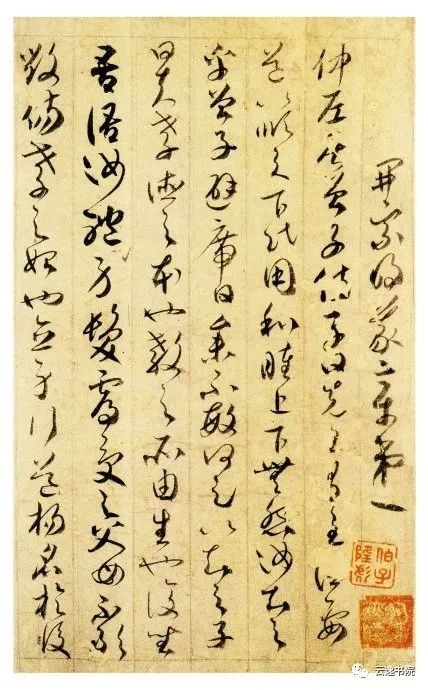 開宗明義章第一
仲尼居曾子侍子曰先王有至德要
道以順天下民用和睦上下無怨汝知之
乎曾子避席曰參不敏何足以知之子
曰夫孝德之本也教之所由生也復坐
吾語汝體身髮膚受之父母不敢
毀傷孝之始也立身行道揚名於後
云逸书院